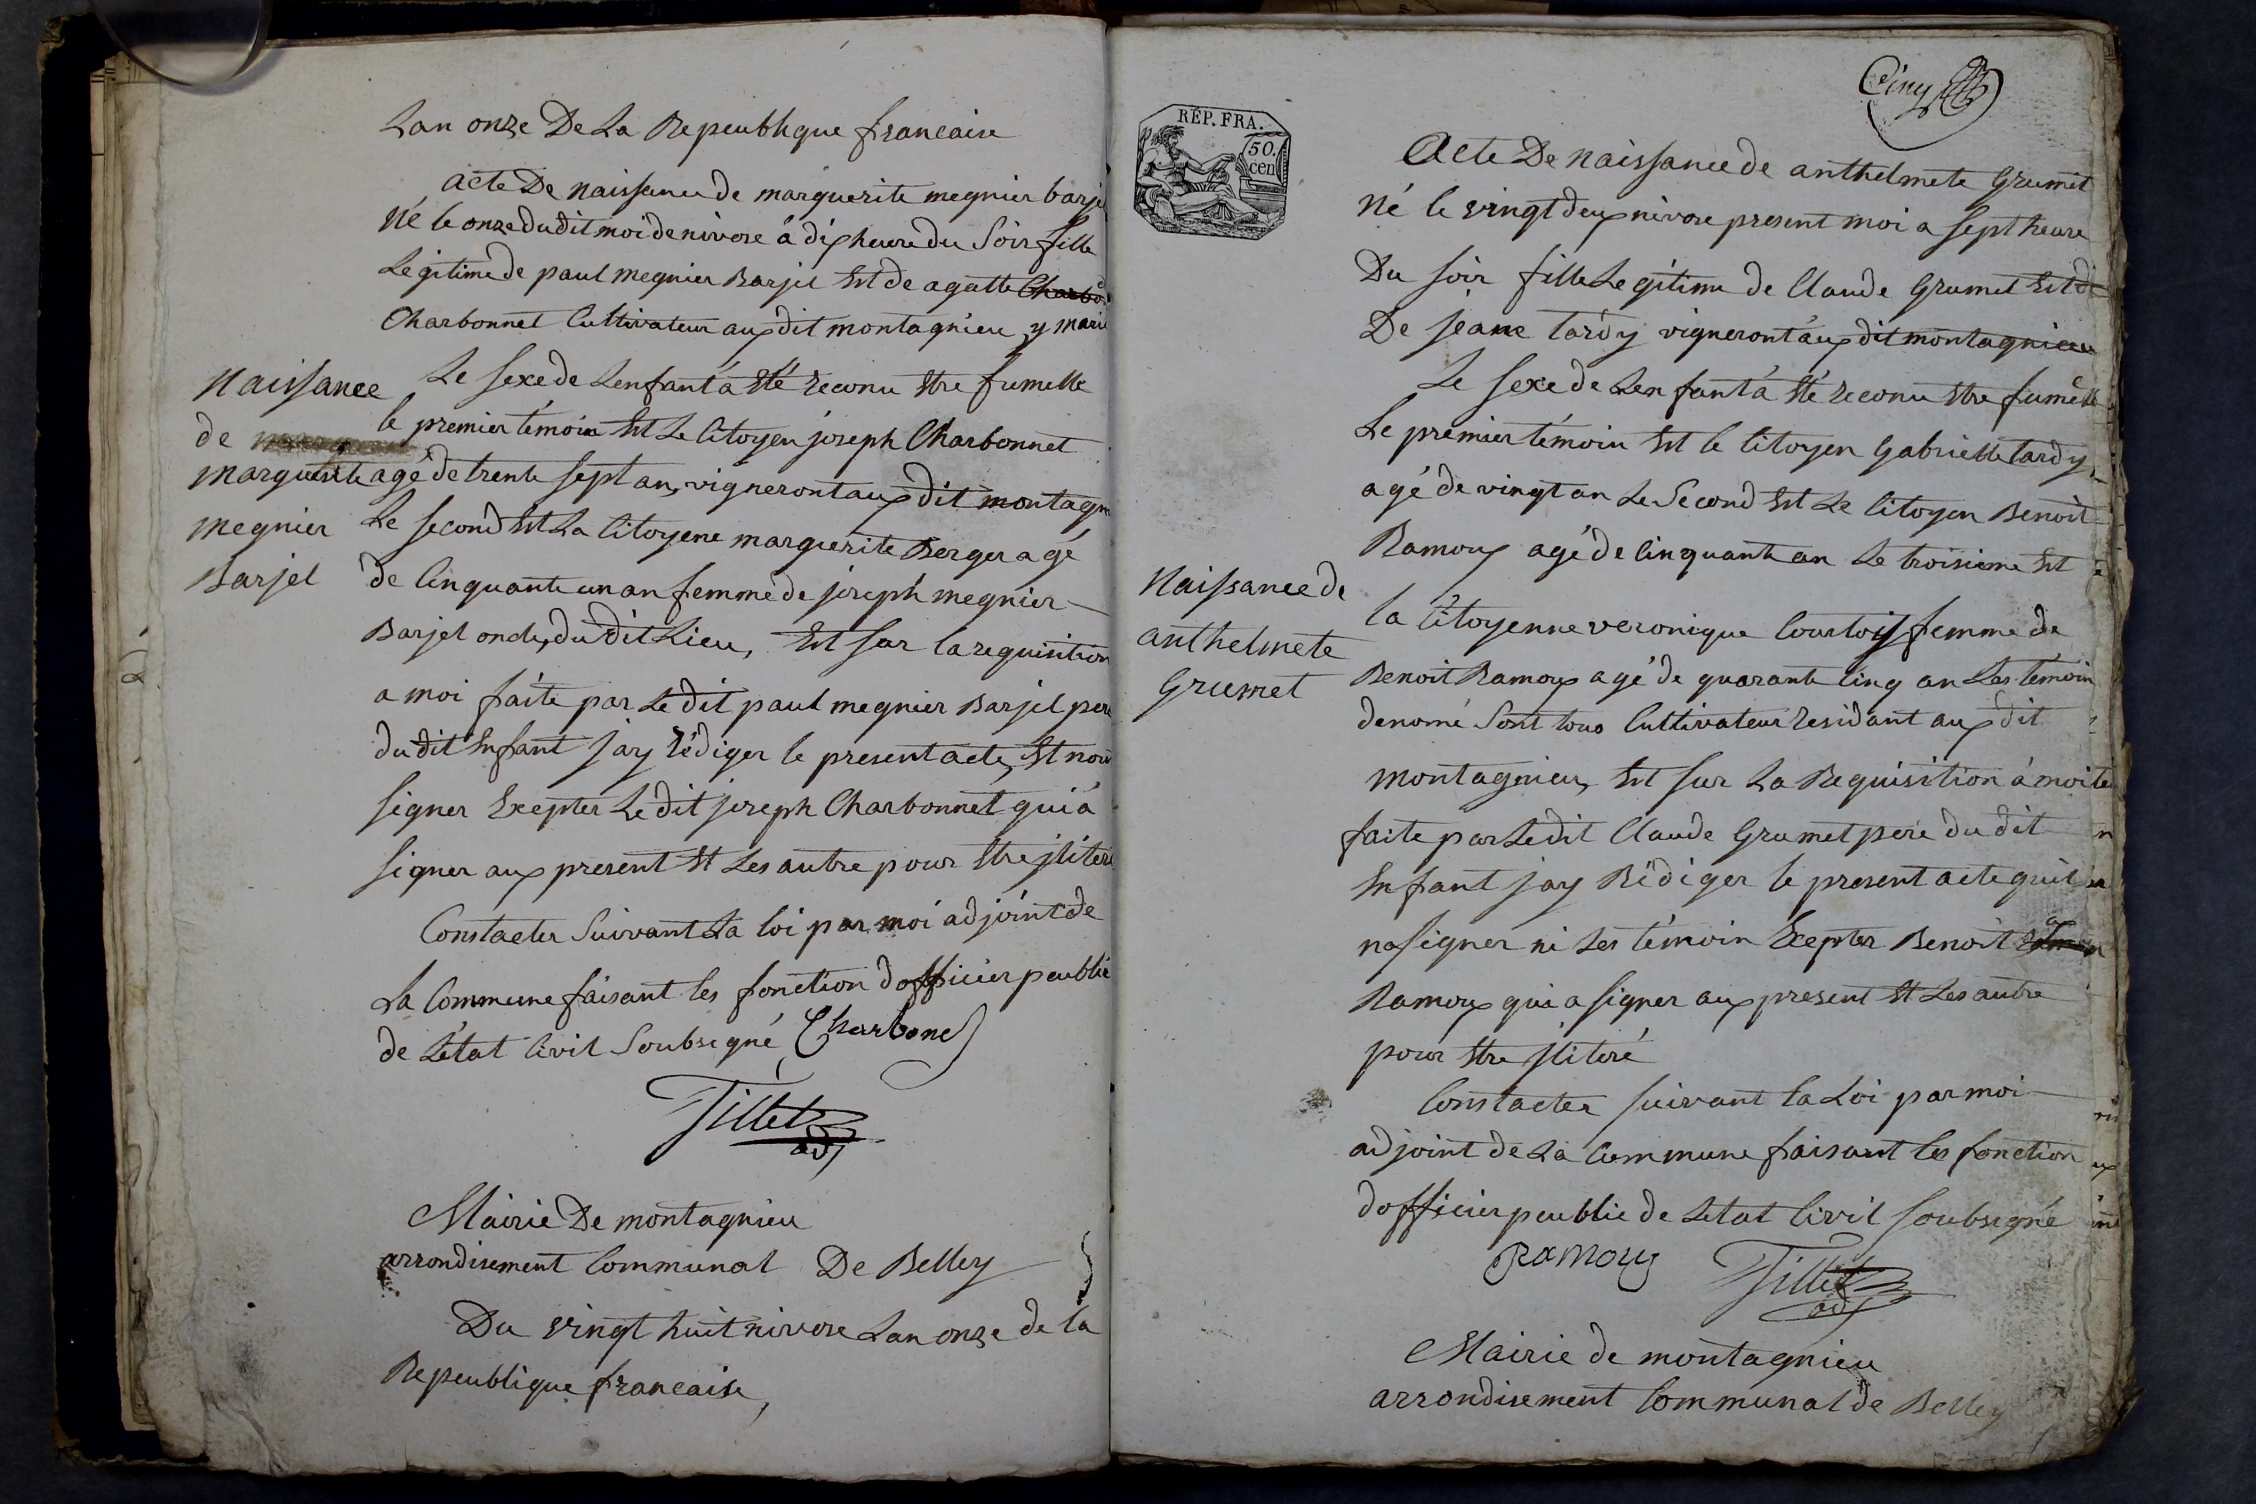 Lan onze De La Repeublique francaise
acte De naissance de marguerite megnier barjel
Né le onze dudit moi de nivose á dix heure du Soir fille
Legitime de paul megnier Barjel Est de agatte Charbo
Charbonnet Cultivateur aux dit montagnieu y marie
Le sexe de Lenfant a Eté reconu Etre fumelle
le premier témoin Est Le Citoyen joseph Charbonnet
agé de trente sept an, vigneront aux dit montagn
Le second Est La Citoyene marguerite Berger agé
de Cinquante un an femme de joseph megnier
Barjel oncle, du dit Lieu, Est sur la requisition
a moi faite par Le dit paul megnier Barjel pere
du dit Enfant jay rédiger le present acte, Et non
signer Exepter Le dit joseph Charbonnet qui á
signer aux present Et Les autre pour Etre jliteré
Constacter Suivant La loi par moi adjoint de
La Commune faisant les fonction dofficier peublic
de Létat Civil Soubsigné Charbonet
Tillet
adj
Naissance
de
marguerite
megnier
Barjel
Mairie De montagnieu
arrondisement Communal De Belley
Du vingt huit nivose Lan onze de la
Repeublique francaise,
Cinq
RÉP. FRA.
50.
cen
Acte De Naissance de anthelmete Grumet
Né le vingt deux nivose present moi a sept heure
Du soir fille Legitime de Claude Grumet Est de
De jeane tardy vigneront aux dit montagnieu
Le sexe de Lenfant á Eté reconu Etre fumelle
Le premier témoin Est le Citoyen Gabrielle tardy
agé de vingt an Le Second Est Le Citoyen Benoit
Ramoux agé de Cinquante an Le troisieme Est
la Citoyenne veronique Courtois femme de
Benoit Ramoux agé de quarante Cinq an Les témoin
denomé Sont tous Cultivateur residant aux dit
montagnieu, Est sur La Requisition á moi
faite par Le dit Claude Grumet pere du dit
Enfant jay Rédiger le present acte quil
na signer ni Les témoin Exepter Benoit
Ramoux qui a signer aux present Et Les autre
pour Etre jliteré
Constacter suivant la Loi par moi
adjoint de La Commune faisant les fonction
dofficier peublic de Letat Civil soubsigné
Ramoux Tillet
adj
Naissance de
anthelmete
Grumet
Mairie de montagnieu
arrondisement Communal de Belley